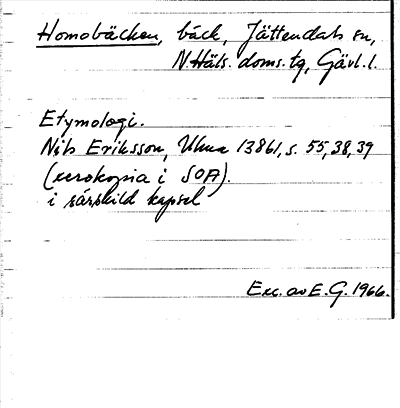 Homobäcken, bäck, Jättendals sn,
N Häls. doms. tg, Gävl. l.
Etymologi.
Nils Eriksson, Ulma 13861, s. 55, 38, 39
(xerokopia i SOA).
i särskild kapsel
Exc. av E. G. 1966.